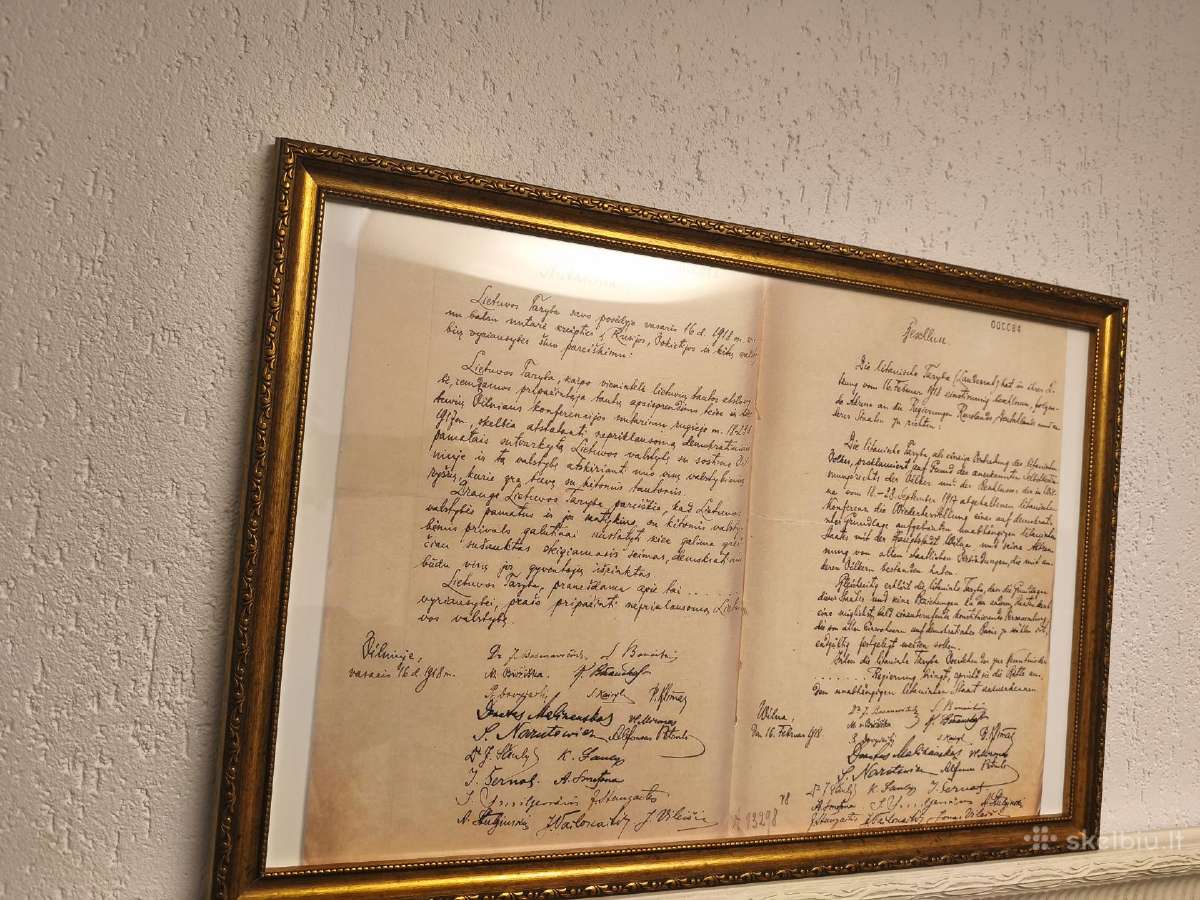 Lietuvos Taryba savo posėdyje vasario 16 d. 1918 m. vi-
nu balsu nutarė kreiptis į Rusijos, Vokietijos ir kitų valsty-
bių vyriausybes šiuo pareiškimu:
Lietuvos Taryba, kaipo vienintelė lietuvių tautos atstovy-
bė, remdamos pripažintąja tautų apsisprendimo teise ir lie-
tuvių Vilniaus konferencijos nutarimu rugsėjo m. 18-23 d.
1917 m., skelbia atstatanti nepriklausomą demokratiniais
pamatais sutvarkytą Lietuvos valstybę su sostine Vil-
niuje ir tą valstybę atskirianti nuo visų valstybinių
ryšių, kurie yra buvę su kitomis tautomis.
Drauge Lietuvos Taryba pareiškia, kad Lietuvos
valstybės pamatus ir jos santykius su kitomis valsty-
bėmis privalo galutinai nustatyti kiek galima grei-
čiau sušauktas steigiamasis seimas, demokratiniu
būdu visų jos gyventojų išrinktas.
Lietuvos Taryba, pranešdama apie tai ......
vyriausybei, prašo pripažinti nepriklausomą Lietu-
vos valstybę.
Vilniuje,
vasario 16 d. 1918 m.
Dr J. Basanavičius S. Banaitis
M. Biržiška K. Bizauskas
P. Dovydaitis S. Kairys P. Klimas
Donatas Malinauskas Vl. Mironas
S. Narutowicz Alfonsas Petrulis
Dr J. Šaulys K. Šaulys
J. Šernas A. Smetona
J. Smilgevičius J. Staugaitis
A. Stulginskis J. Vailokaitis J. Vileišis
000084
Beschluss.
Die litauische Taryba (Landesrat) hat in ihrer Sit-
zung vom 16. Februar 1918 einstimmig beschlossen, folgen-
de Adresse an die Regierungen Russlands, Deutschlands und an-
derer Staaten zu richten:
Die litauische Taryba als einzige Vertretung des litauischen
Volkes, proklamiert auf Grund des anerkannten Selbstbestim-
mungsrechts der Völker und des Beschlusses der in Wil-
na vom 18.-23. September 1917 abgehaltenen litauischen
Konferenz die Wiederherstellung eines auf demokrati-
scher Grundlage aufgebauten unabhängigen litauischen
Staates mit der Hauptstadt Wilna und seine Abtren-
nung von allen staatlichen Verbindungen, die mit an-
deren Völkern bestanden haben.
Gleichzeitig erklärt die litauische Taryba, dass die Grundlagen
dieses Staates und seine Beziehungen zu den andern Staaten durch
eine möglichst bald einzuberufende konstituierende Versammlung,
die von allen Einwohnern auf demokratischer Basis zu wählen ist,
endgültig festgelegt werden sollen.
Indem die litauische Taryba Obiges zur Kenntnis der
........ Regierung bringt, spricht sie die Bitte aus,
den unabhängigen litauischen Staat anzuerkennen.
Wilna,
den 16. Februar 1918.
Dr J. Basanavičius S. Banaitis
M. Biržiška K. Bizauskas
P. Dovydaitis S. Kairys P. Klimas
Donatas Malinauskas Vl. Mironas
S. Narutowicz Alfonsas Petrulis
Dr J. Šaulys K. Šaulys J. Šernas
A. Smetona J. Smilgevičius A. Stulginskis
J. Staugaitis J. Vailokaitis Jonas Vileišis
78
A 13298
skelbiu.lt